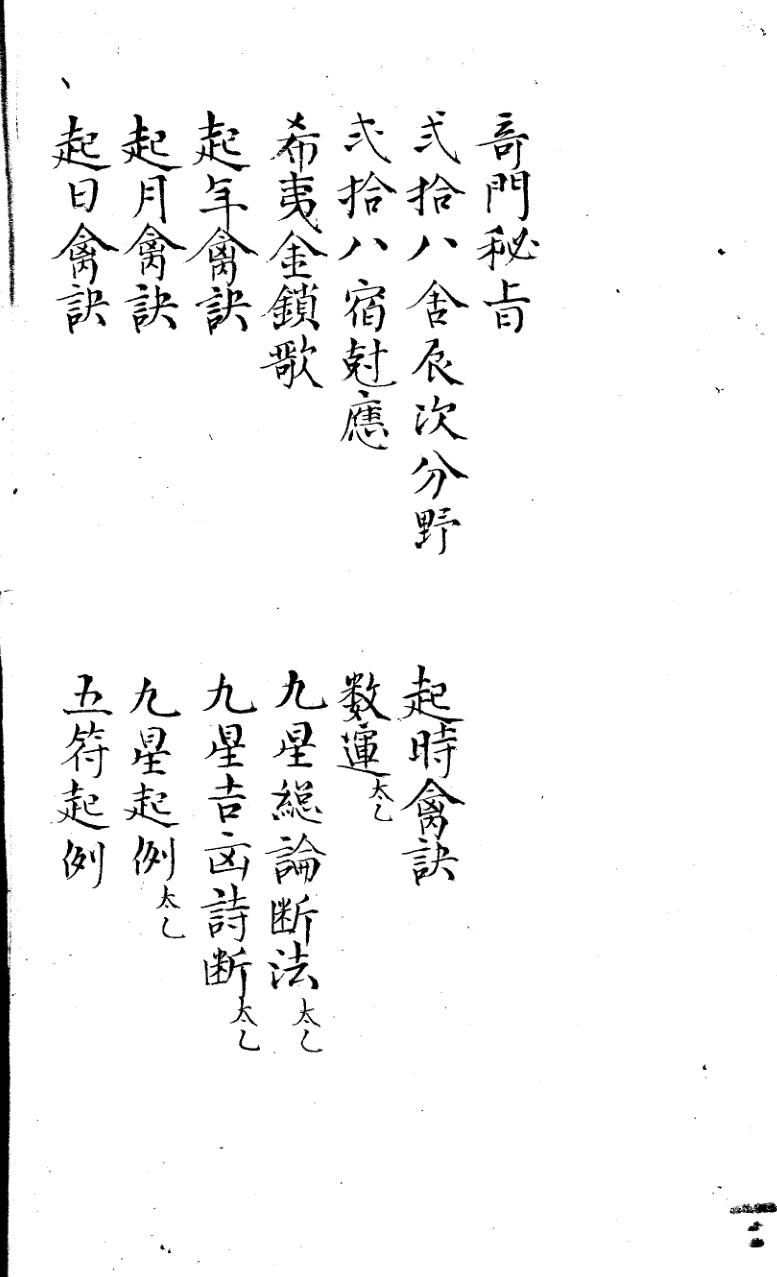 奇門秘旨
弍拾八舍辰次分野
弍拾八宿尅應
希夷金鎖歌
起年禽訣
起月禽訣
起日禽訣
起時禽訣
数運太乙
九星総論断法太乙
九星吉凶詩断太乙
九星起例太乙
五符起例